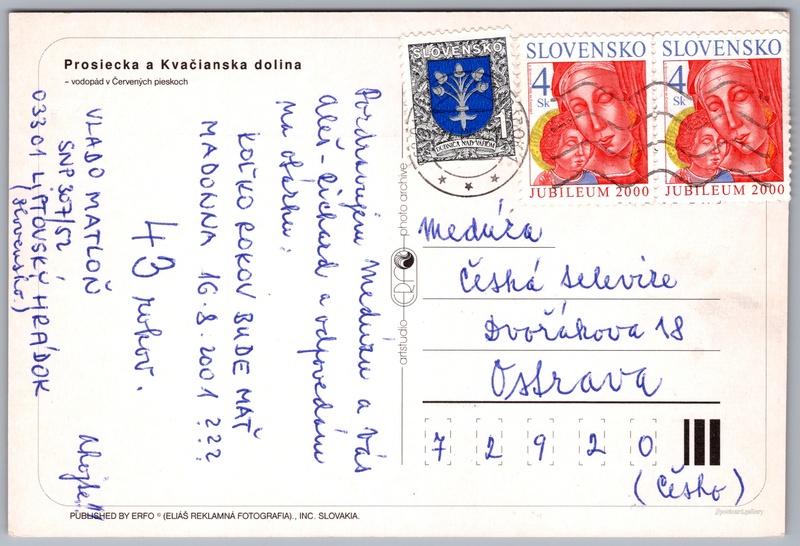 Prosiecka a Kvačianska dolina
– vodopád v Červených pieskoch
Pozdravujem Medúzu a Vás
Aleš-Richard a odpovedám
na otázku:
KOĽKO ROKOV BUDE MAŤ
MADONNA 16.8.2001 ???
43 rokov.
VLADO MATLOŇ
SNP 307/52
03301 LIPTOVSKÝ HRÁDOK
(Slovensko.)
Ahojte!!!
SLOVENSKO
1
DUBNICA NAD VÁHOM
SLOVENSKO
4
Sk
JUBILEUM 2000
SLOVENSKO
4
Sk
JUBILEUM 2000
artstudio ERFO photo archive
Medúza
Česká televize
Dvořákova 18
Ostrava
72920
(Česko)
PUBLISHED BY ERFO © (ELIÁŠ REKLAMNÁ FOTOGRAFIA)., INC. SLOVAKIA.